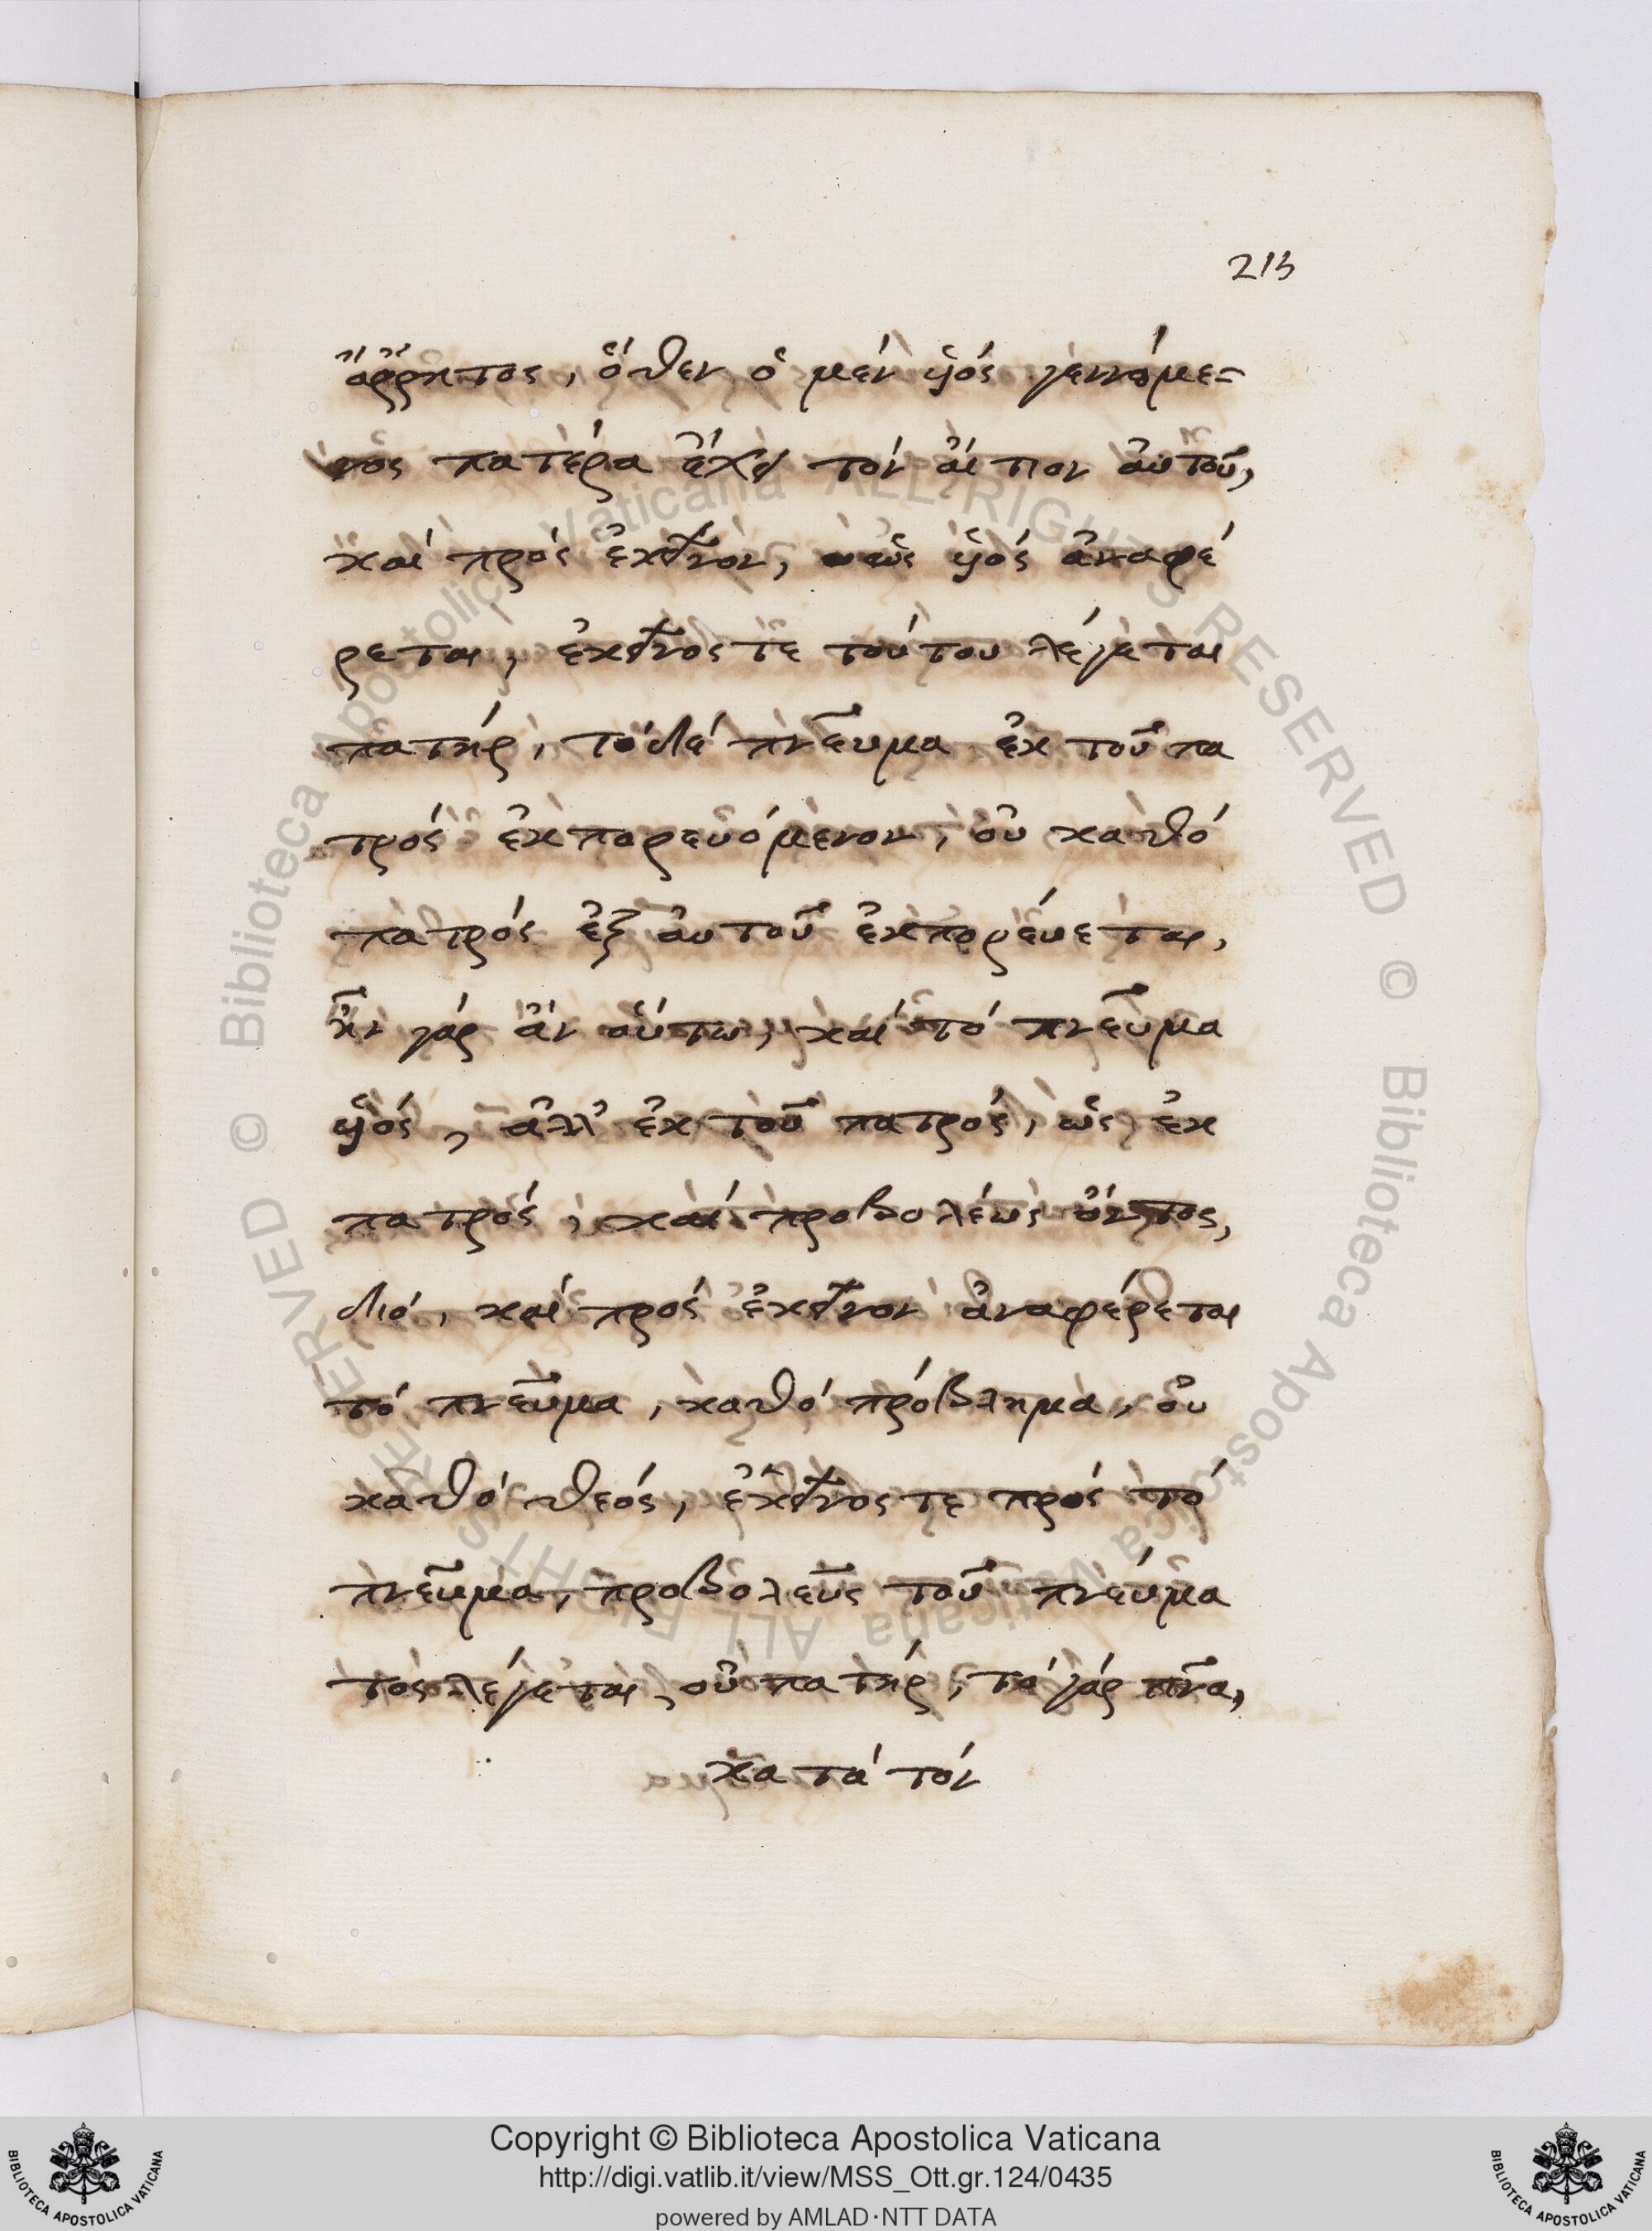 213
ἄῤῥητος, ὅθεν ὁ μέν υἱός γεννόμε-
νος πατέρα ἔχει τόν αἴτιον αὐτοῦ,
καί πρός ἐκεῖνον, ὡς υἱός ἀναφέ
ρεται, ἐκεῖνος τε τούτου λέγεται
πατήρ, τό δέ πνεῦμα ἐκ τοῦ πα
τρός ἐκπορευόμενον, οὐ καθό
πατρός ἐξ αὐτοῦ ἐκπορεύεται,
ἦν γάρ ἄν οὕτω, καί τό πνεῦμα
υἱός, ἀλλ' ἐκ τοῦ πατρός, ὡς ἐκ
πατρός, καί προβολέως ὄντος,
διό, καί πρός ἐκεῖνον ἀναφέρεται
τό πνεῦμα, καθό πρόβλημα, οὐ
καθό θεός, ἐκεῖνος τε πρός τό
πνεῦμα, προβολεῦς τοῦ πνεύμα
τος λέγεται, οὐ πατήρ, τό γάρ πνα,
κατά τόν
© Biblioteca Apostolica Vaticana ALL RIGHTS RESERVED
© Biblioteca Apostolica Vaticana ALL RIGHTS RESERVED
Copyright © Biblioteca Apostolica Vaticana
http://digi.vatlib.it/view/MSS_Ott.gr.124/0435
powered by AMLAD·NTT DATA
BIBLIOTECA APOSTOLICA VATICANA
BIBLIOTECA APOSTOLICA VATICANA